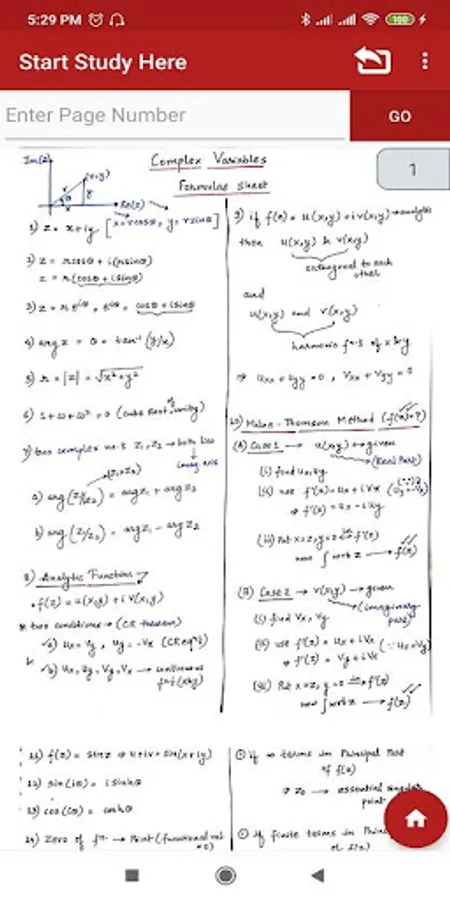 5:29 PM
100
Start Study Here
Enter Page Number
GO
1
Complex Variables
Formulae sheet
Im(z)
(x,y)
r
y
θ
x
Re(z)
1) z = x+iy [x = r cosθ, y = r sinθ]
2) z = r cosθ + i(r sinθ)
z = r(cosθ + i sinθ)
3) z = r e^iθ, e^iθ = cosθ + i sinθ
4) arg z = θ = tan⁻¹ (y/x)
5) r = |z| = √x²+y²
6) 1+ω+ω² = 0 (cube root of unity)
7) two complex no.s z₁, z₂ → both lies
imag axis
(z₁×z₂)
a) arg(z₁/z₂) = arg z₁ + arg z₂
b) arg(z₁/z₂) = arg z₁ - arg z₂
8) Analytic Function
• f(z) = u(x,y) + i v(x,y)
* two conditions → (CR theorem)
a) ux = vy, uy = -vx (CR eqⁿs)
b) ux, uy, vy, vx → continuous
fⁿ of (x&y)
9) if f(z) = u(x,y) + i v(x,y) → analytic
then u(x,y) & v(x,y)
orthogonal to each
other
and
u(x,y) and v(x,y)
harmonic fⁿ.s of x & y
⇒ uxx + uyy = 0, vxx + vyy = 0
10) Milne-Thomson Method (f(z)=?)
(A) Case 1 → u(x,y) → given
(Real Part)
(i) find ux, uy
(ii) use f'(z) = ux + i vx
⇒ f'(z) = ux - i uy
(iii) Put x=z, y=0 in f'(z)
now ∫ w.r.to z → f(z)
(B) Case 2 → v(x,y) → given
(imaginary
part)
(i) find vx, vy
(ii) use f'(z) = ux + i vx (∵ ux = vy)
⇒ f'(z) = vy + i vx
(iii) Put x=z, y=0 in f'(z)
now ∫ w.r.to z → f(z)
11) f(z) = sin z ⇒ u+iv = sin(x+iy)
12) sin(iθ) = i sinhθ
13) cos(iθ) = coshθ
14) Zero of fⁿ. → Point (functional val
= 0)
if ∞ terms in Principal Part
of f(z)
⇒ z₀ → essential singular
point
if finite terms in
of f(z)